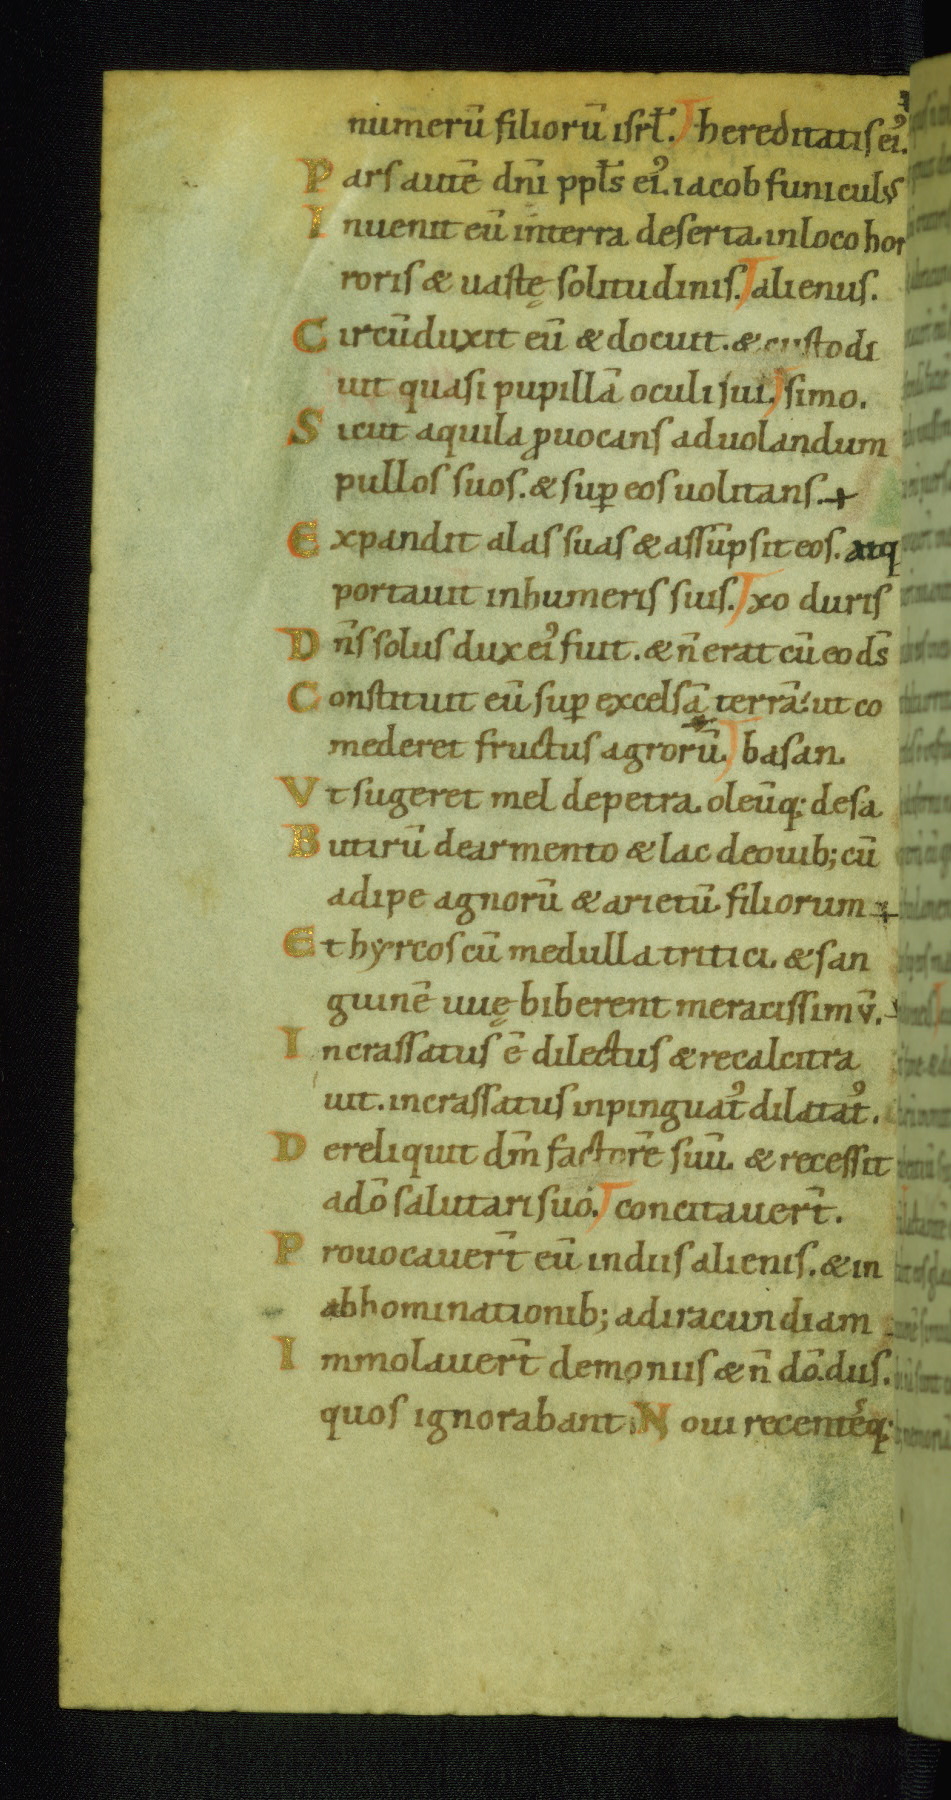 numerū filiorū isrł. hereditatis ei᾽.
Pars autē dnī ppłs ei᾽. iacob funiculus
Inuenit eū in terra deserta. in loco hor
roris & uastę solitudinis. alienus.
Circūduxit eū & docuit. & custodi
uit quasi pupillā oculi sui. simo.
Sicut aquila ꝓuocans ad uolandum
pullos suos. & suꝑ eos uolitans. +
Expandit alas suas & assūpsit eos. atq
portauit in humeris suis. xo duris
Dn̄s solus dux ei᾽ fuit. & n̄ erat cū eo ds̄
Constituit eū suꝑ excelsā terrā. ut co
mederet fructus agrorū. basan.
Vt sugeret mel de petra. oleūq: de sa
Butirū de armento & lac de ouib; cū
adipe agnorū & arietū filiorum +
Et hyrcos cū medulla tritici. & san
guinē uuę biberent meracissimū.
Incrassatus ē dilectus & recalcitra
uit. incrassatus inpinguat᾽ dilatat᾽.
Dereliquit dm̄ factorē suū. & recessit
a dō salutari suo. concitauer̄t.
Prouocauer̄t eū in diis alienis. & in
abhominationib; ad iracundiam
Immolauer̄t demoniis & n̄ dō. dus.
quos ignorabant. Noui recentēq: